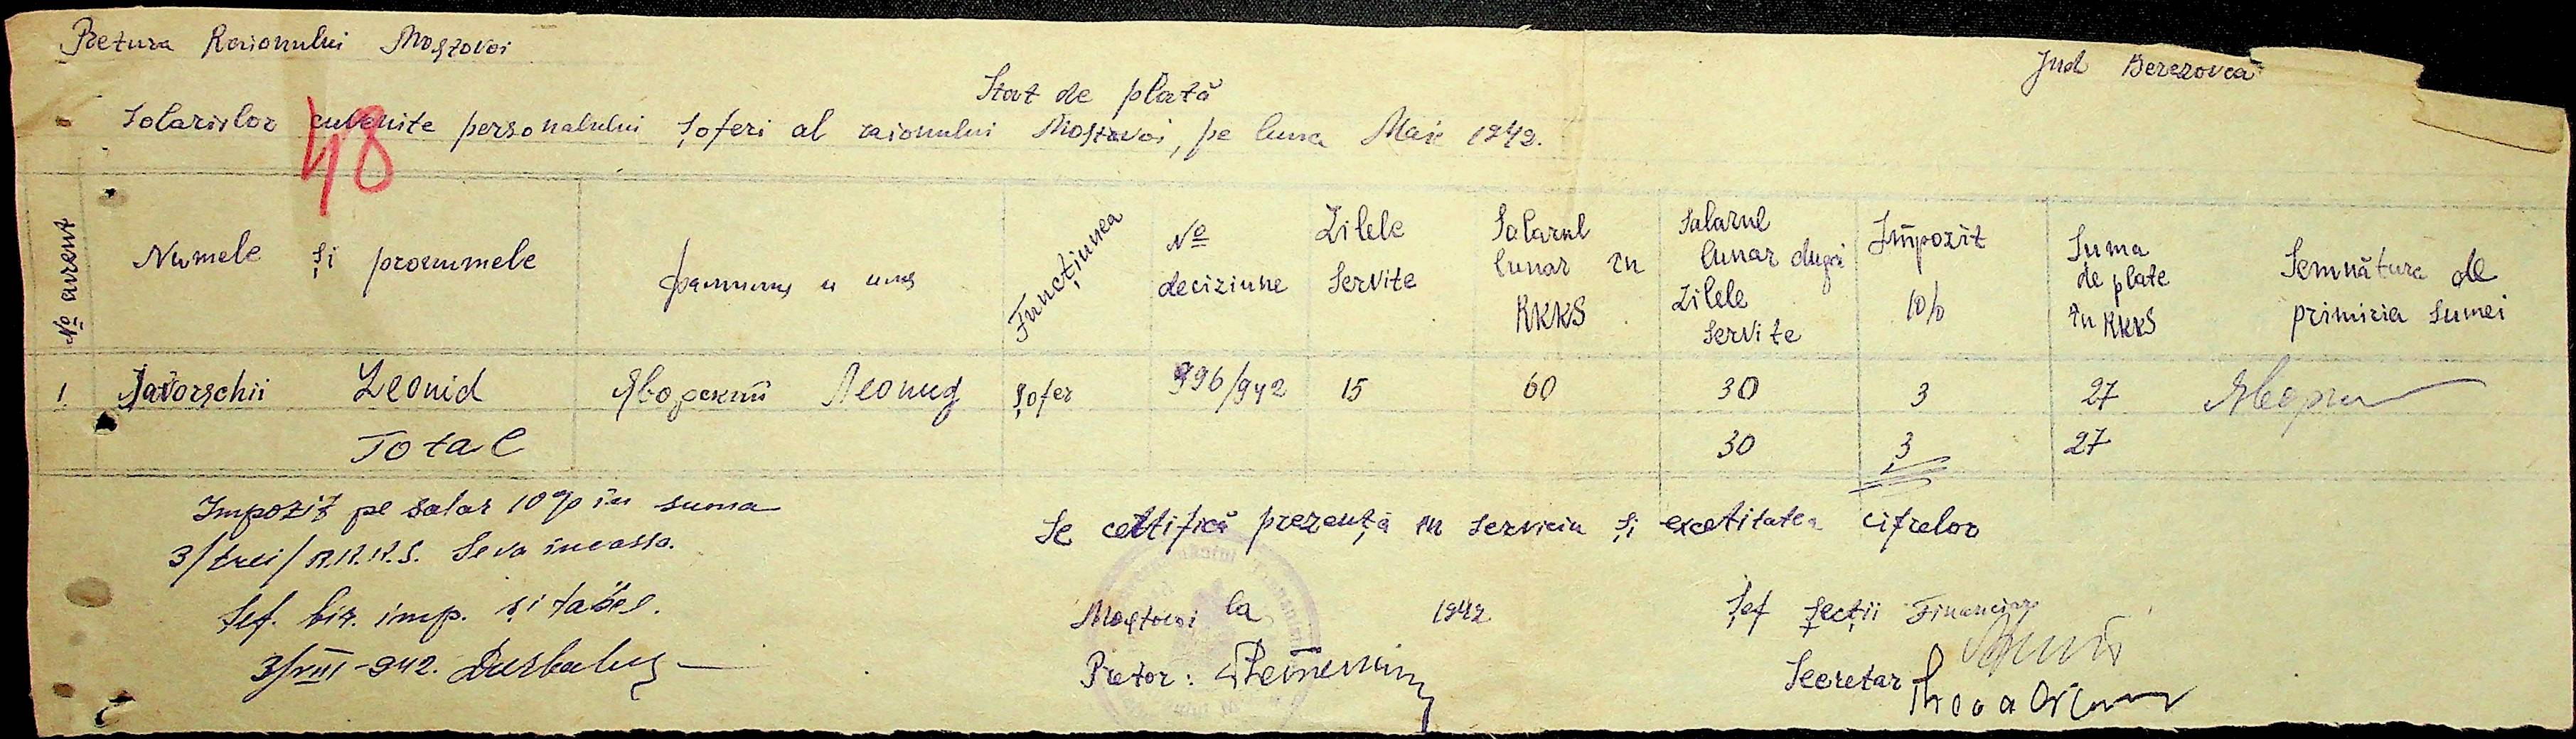 Pretura Raionului Moștovoi
Jud Berezovca
Stat de plată
Solariilor cuvenite personalului șoferi al raionului Moștovoi, pe luna Maie 1942.
48
No curent
Numele și pronumele
фамилия и имя
Funcțiunea
No deciziune
Zilele Servite
Salarul lunar în RKKS
Salarul lunar după Zilele Servite
Impozit 10%
Suma de plate în RKKS
Semnătura de primiria Sumei
1. Javorschii Leonid Яворский Леонид șofer 996/942 15 60 30 3 27 Явори
Total 30 3 27
Impozit pe salar 10% în suma
3/trei/ R.K.K.S. Se va incassa.
Șef. bir. imp. și tabel.
3/VIII-942.
Se certifică prezență în serviciu și excetitatea cifrelor
Moștovoi la 1942
Pretor:
Șef Secții Financiar
Secretar